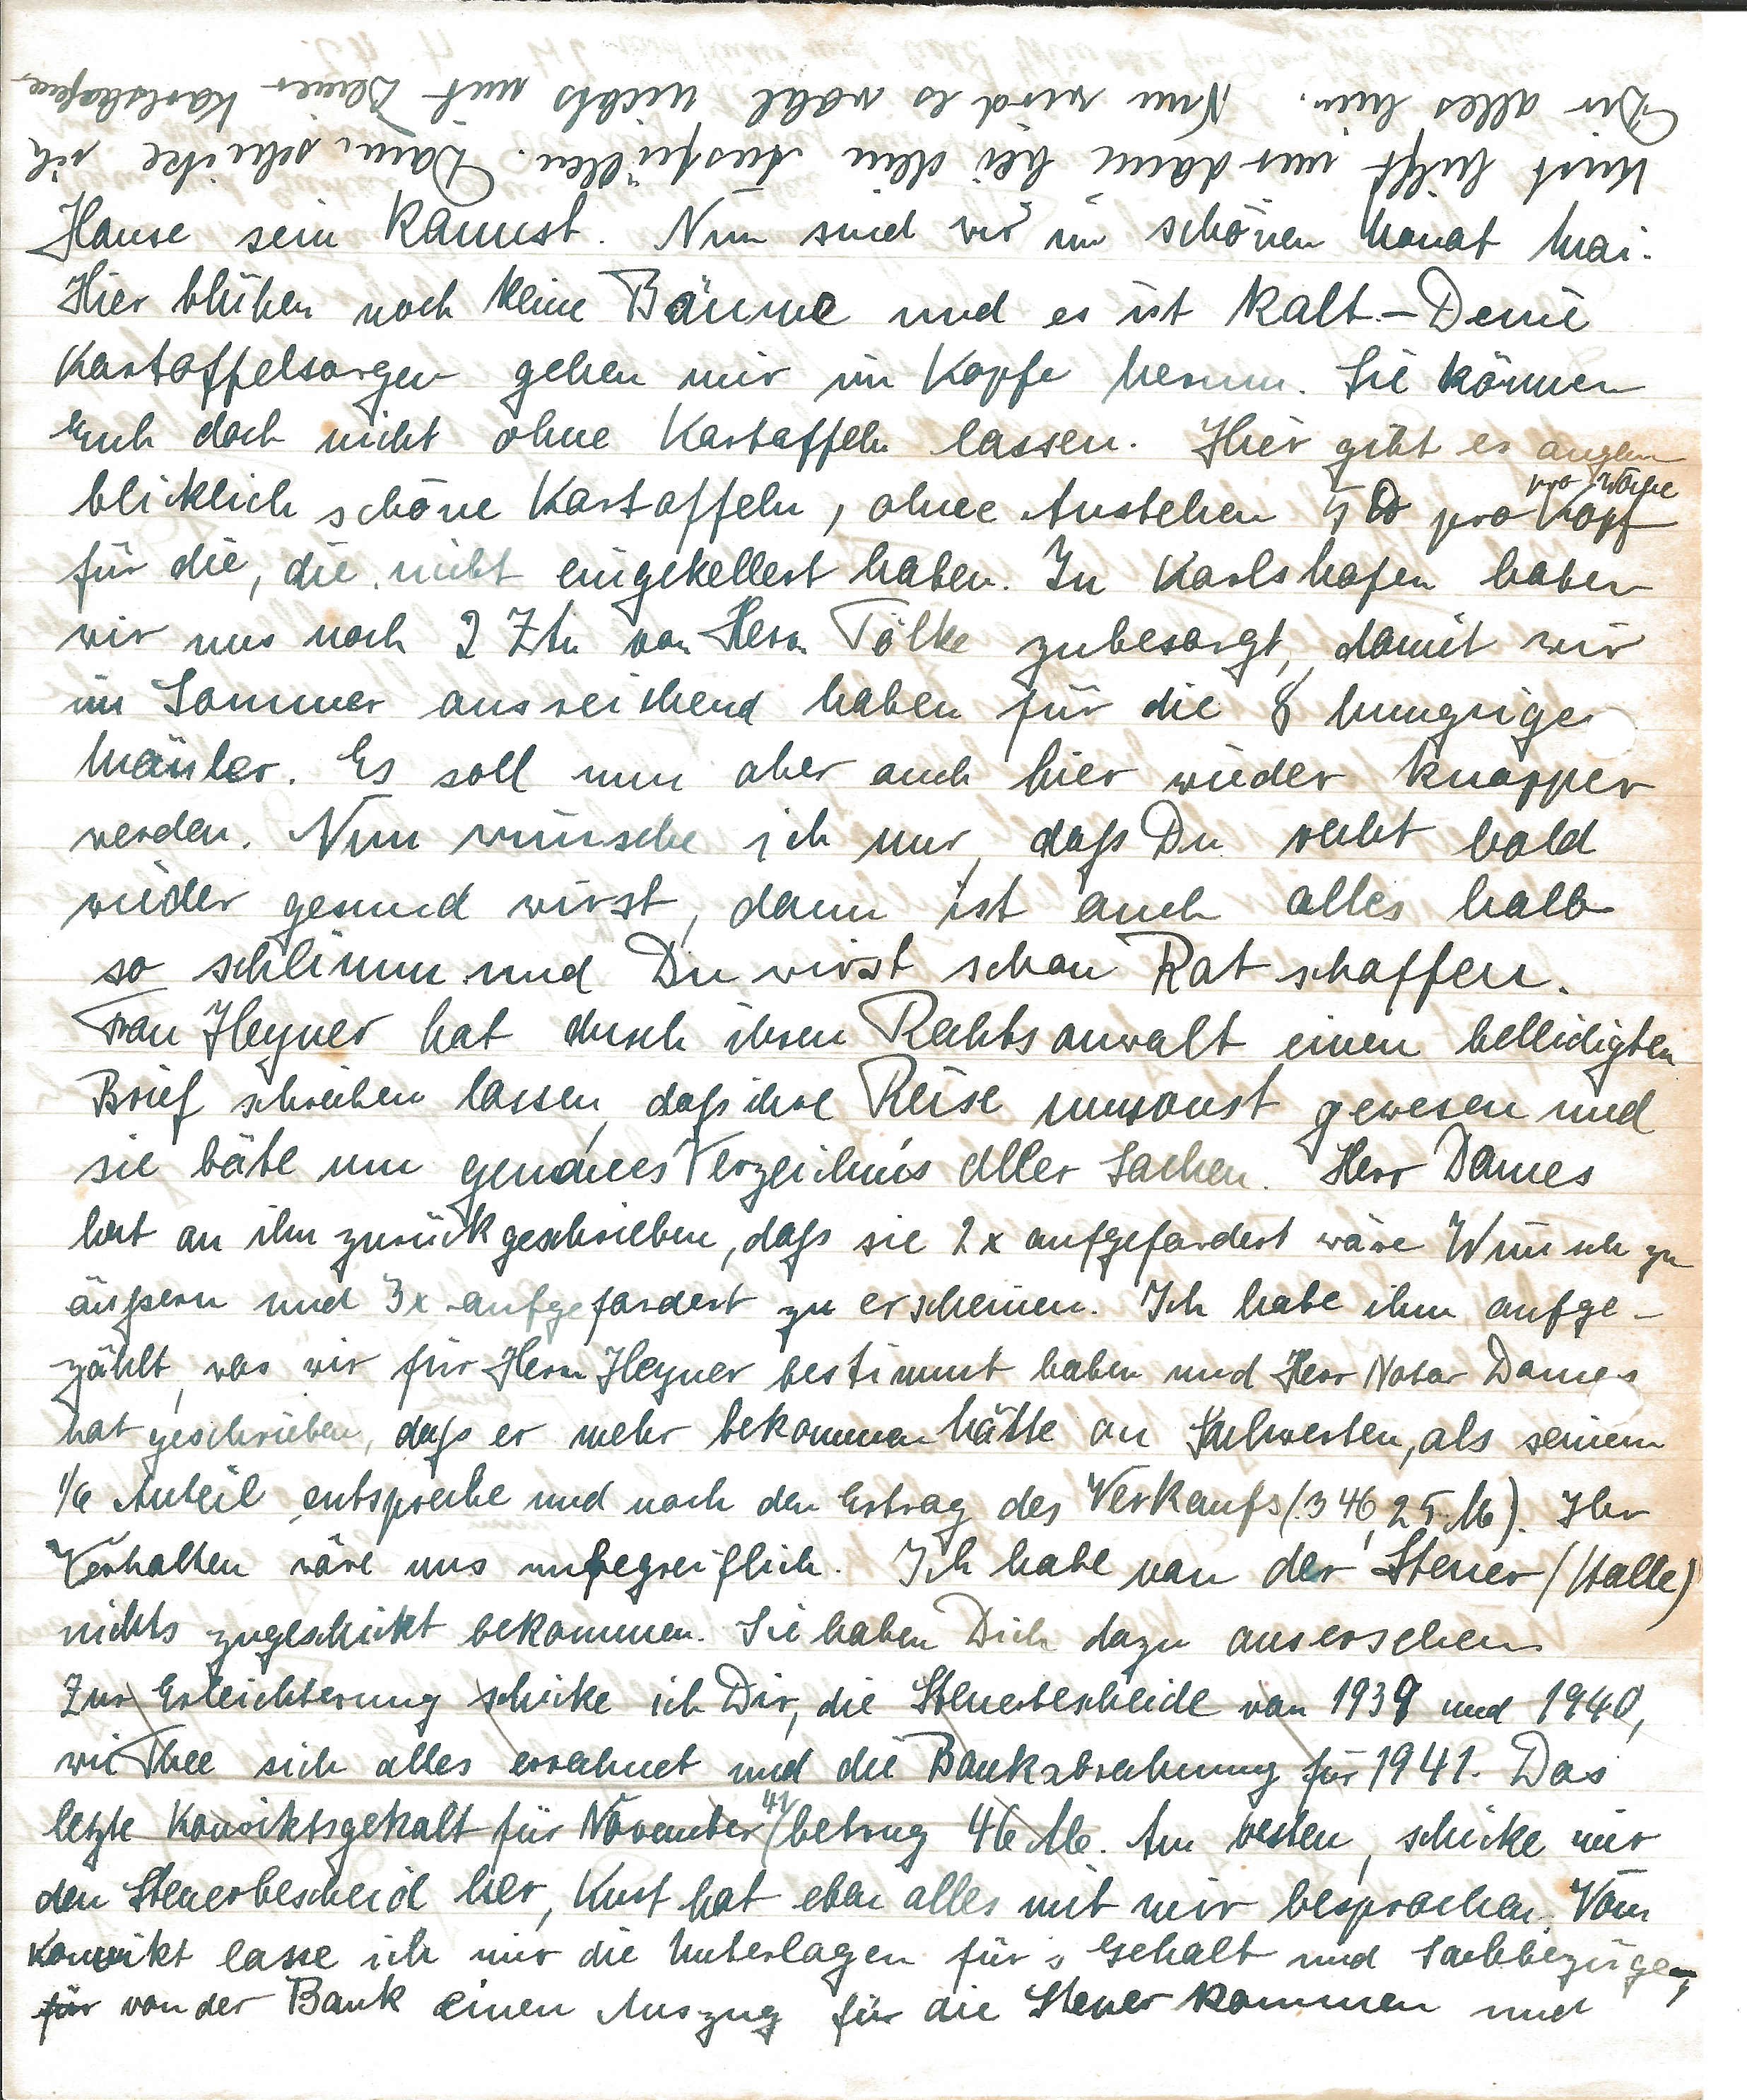 Hause sein kannst. Nun sind wir im schönen Monat Mai.
Hier blühen noch keine Bäume und es ist kalt. – Deine
Kartoffelsorgen gehen mir im Kopfe herum. Sie können
Euch doch nicht ohne Kartoffeln lassen. Hier gibt es augen
blicklich schöne Kartoffeln, ohne Anstehen 5 ℔ pro Kopf
pro Woche
für die, die nicht eingekellert haben. In Karlshafen haben
wir uns noch 2 Ztr von Herrn Tölke zubesorgt, damit wir
im Sommer ausreichend haben für die 8 hungrige
Mäuler. Es soll nun aber auch hier wieder knapper
werden. Nun wünsche ich nur, daß Du recht bald
wieder gesund wirst, dann ist auch alles halb
so schlimm und Du wirst schon Rat schaffen.
Frau Heyner hat durch ihren Rechtsanwalt einen beleidigten
Brief schreiben lassen, daß ihre Reise umsonst gewesen und
sie bäte um genaues Verzeichnis aller Sachen. Herr Dames
hat an ihn zurückgeschrieben, daß sie 2x aufgefordert wäre Wünsche zu
äußern und 3x aufgefordert zu erscheinen. Ich habe ihm aufge-
zählt, was wir für Herrn Heyner bestimmt haben und Herr Notar Dames
hat geschrieben, daß er mehr bekommen hätte an Sachwerten, als seinem
1/6 Anteil entspreche und noch den Ertrag des Verkaufs (346,25 M). Ihr
Verhalten wäre uns unbegreiflich. Ich habe von der Steuer (Halle)
nichts zugeschickt bekommen. Sie haben Dich dazu ausersehen
Zur Erleichterung schicke ich Dir, die Steuerbescheide von 1939 und 1940,
wie Thee sich alles errechnet und die Bankabrechnung für 1941. Das
letzte Konviktsgehalt für November 41 betrug 46 M. Am besten, schicke mir
den Steuerbescheid her, Kurt hat eben alles mit mir besprochen. Vom
Konvikt lasse ich mir die Unterlagen für's Gehalt und Sachbezüge,
für von der Bank einen Auszug für die Steuer kommen und
Kurt hilft mir dann bei dem Ausfüllen. Dann schicke ich
Dir alles hin. Nun wird es wohl nichts mit Deiner Karlshafener